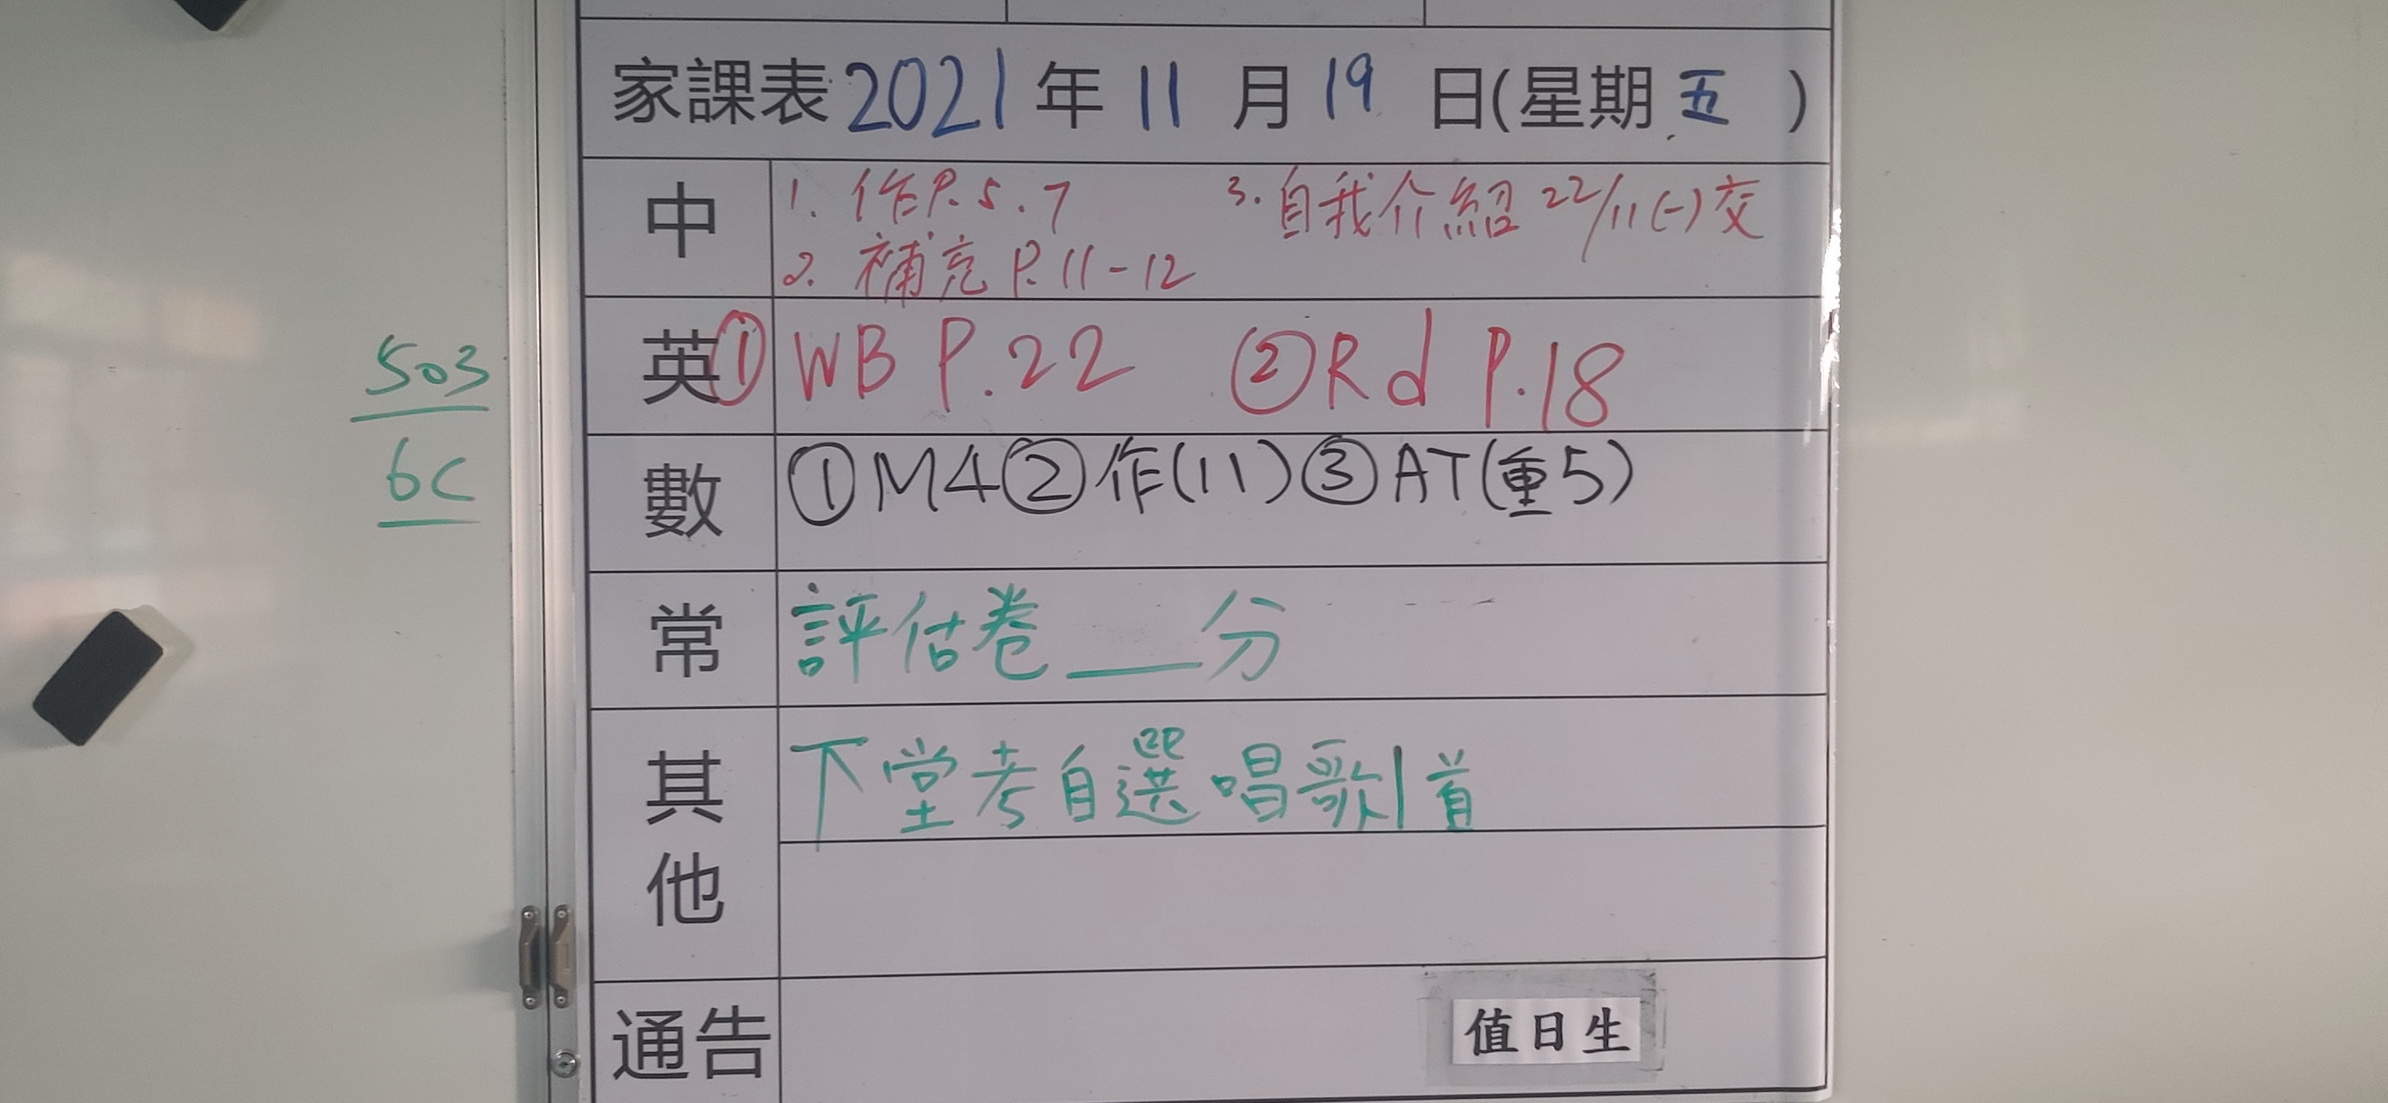 家課表 2021 年 11 月 19 日(星期 五 )
中
1. 作P.5.7 3. 自我介紹 22/11(一)交
2. 補充 P.11-12
英 ① WB P.22 ② Rd P.18
數 ① M4 ② 作(11) ③ AT(重5)
常 評估卷 ___ 分
其他 下堂考自選唱歌1首
通告
值日生
503
6C